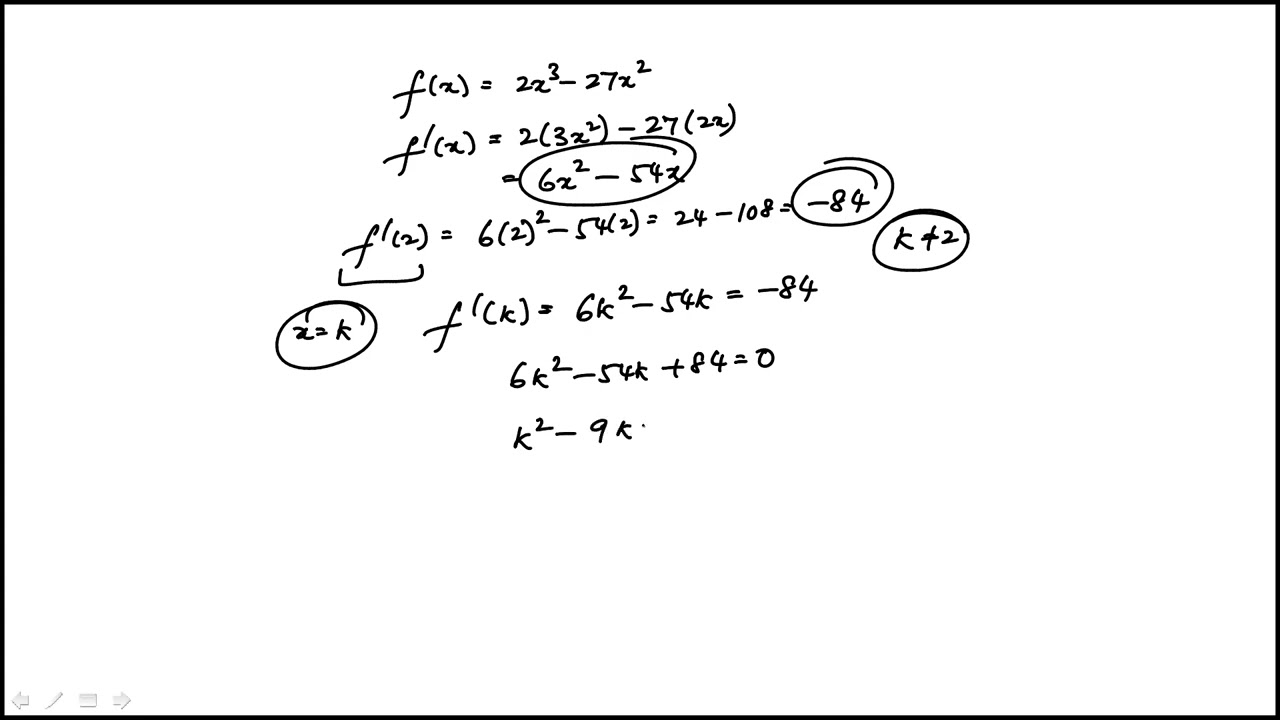 f(x) = 2x³ - 27x²
f'(x) = 2(3x²) - 27(2x)
= 6x² - 54x
f'(2) = 6(2)² - 54(2) = 24 - 108 = -84
k ≠ 2
x = k
f'(k) = 6k² - 54k = -84
6k² - 54k + 84 = 0
k² - 9k